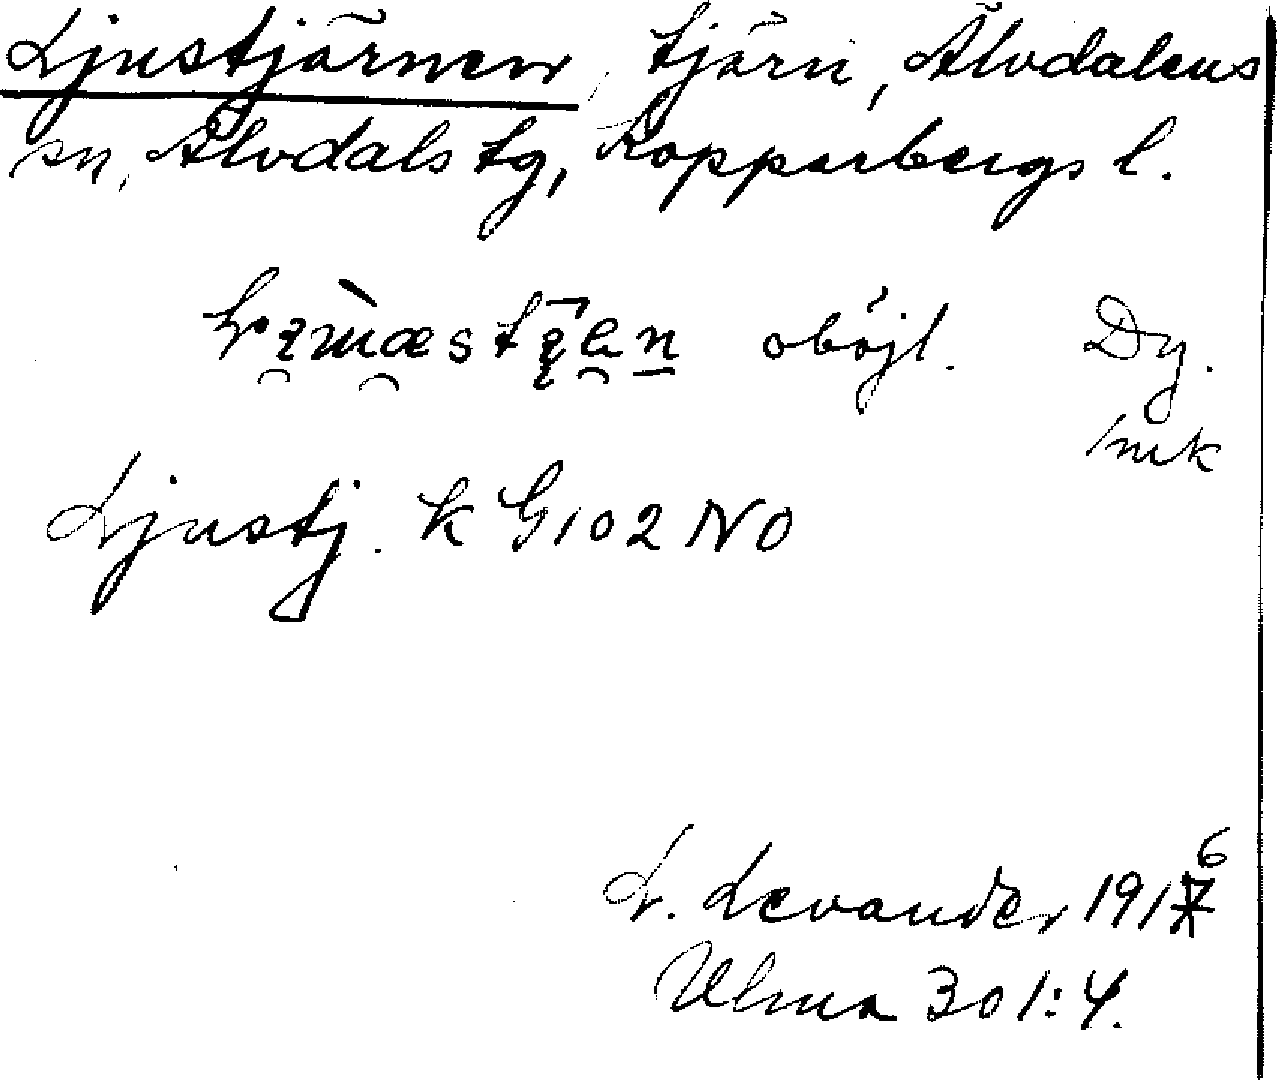 Ljustjärnen, tjärn, Älvdalens
sn, Älvdals tg, Kopparbergs l.
oböjl. Dy.
/mk
Ljustj. K G102 NO
L. Levander 1916
Ulma 301:4.